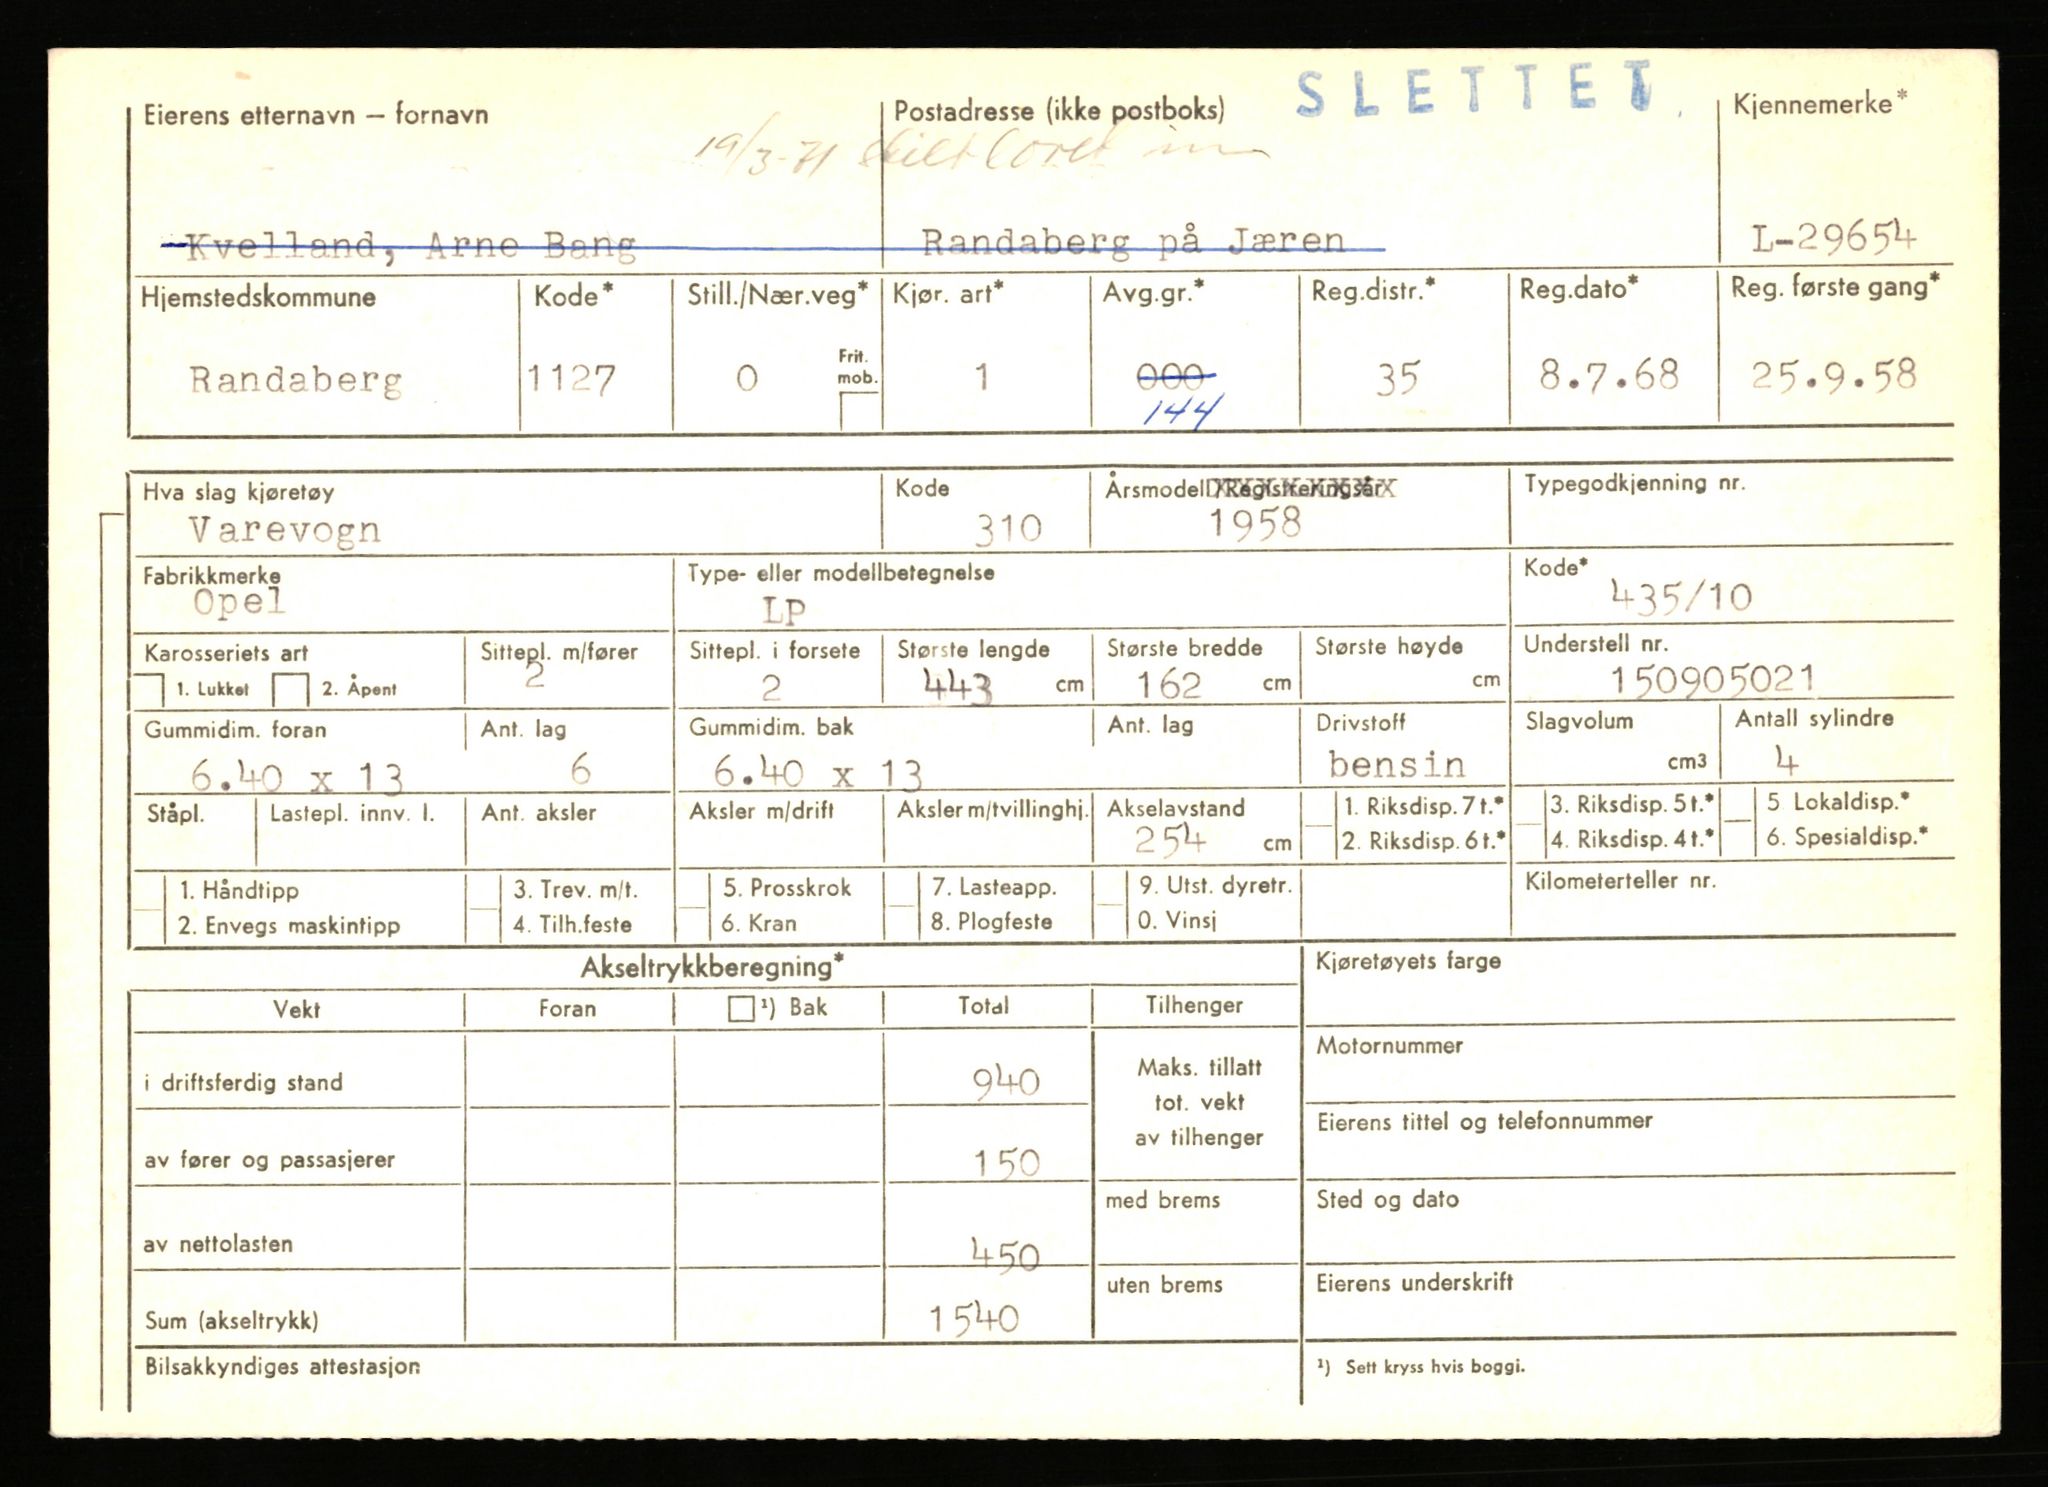 SLETTET
Eierens etternavn – fornavn Postadresse (ikke postboks) Kjennemerke*
19/3-71 inn
Kvelland, Arne Bang Randaberg på Jæren L-29654
Hjemstedskommune Kode* Still./Nær.veg* Kjør. art* Avg.gr.* Reg.distr.* Reg.dato* Reg. første gang*
Frit. mob.
Randaberg 1127 0 1 000 35 8.7.68 25.9.58
144
Hva slag kjøretøy Kode Årsmodell/Registreringsår Typegodkjenning nr.
Varevogn 310 1958
Fabrikkmerke Type- eller modellbetegnelse Kode*
Opel LP 435/10
Karosseriets art Sittepl. m/fører Sittepl. i forsete Største lengde Største bredde Største høyde Understell nr.
1. Lukket 2. Åpent 2 2 443 cm 162 cm cm 150905021
Gummidim. foran Ant. lag Gummidim. bak Ant. lag Drivstoff Slagvolum Antall sylindre
6.40 x 13 6 6.40 x 13 bensin cm3 4
Ståpl. Lastepl. innv. l. Ant. aksler Aksler m/drift Aksler m/tvillinghj. Akselavstand 1. Riksdisp. 7 t.* 3. Riksdisp. 5 t.* 5 Lokaldisp.*
254 cm 2. Riksdisp. 6 t.* 4. Riksdisp. 4 t.* 6. Spesialdisp.*
1. Håndtipp 3. Trev. m/t. 5. Prosskrok 7. Lasteapp. 9. Utst. dyretr. Kilometerteller nr.
2. Envegs maskintipp 4. Tilh.feste 6. Kran 8. Plogfeste 0. Vinsj
Akseltrykkberegning* Kjøretøyets farge
Vekt Foran ¹) Bak Total Tilhenger
Motornummer
i driftsferdig stand 940 Maks. tillatt
tot. vekt
av tilhenger
Eierens tittel og telefonnummer
av fører og passasjerer 150
med brems Sted og dato
av nettolasten 450
uten brems Eierens underskrift
Sum (akseltrykk) 1540
Bilsakkyndiges attestasjon ¹) Sett kryss hvis boggi.